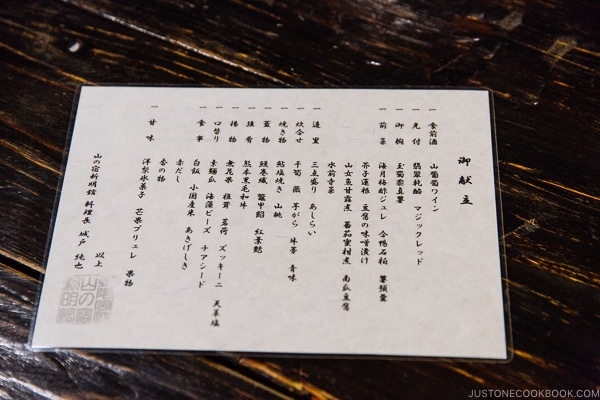 御献立
一 食前酒 山葡萄ワイン
一 先付 翡翠純酪 マジックレッド
一 御椀 玉蜀黍真薯
一 前菜 海月梅酢ジュレ 合鴨石柏 薯預羹
芥子蓮根 豆腐の味噌漬け
山女魚甘露煮 蕃茄蜜柑煮 南瓜豆腐
水前寺菜
一 造里 三点盛り あしらい
一 炊合せ 干筍 蕗 芋がら 牛蒡 青味
一 焼き物 鮎塩焼き 山桃
一 蓋物 鰻巻繊 鼈甲餡 紅葉麩
一 強肴 熊本黒毛和牛
一 揚物 無花果 椎茸 茗荷 ズッキーニ 天草塩
一 口替り 素麺瓜 海藻ビーズ チアシード
一 食事 白飯 小国産米 あきげしき
赤だし
香の物
一 甘味 洋梨氷菓子 芒果ブリュレ 果物
以上
山の宿新明館 料理長 城戸 純也
山の宿
新明館
JUSTONECOOKBOOK.COM